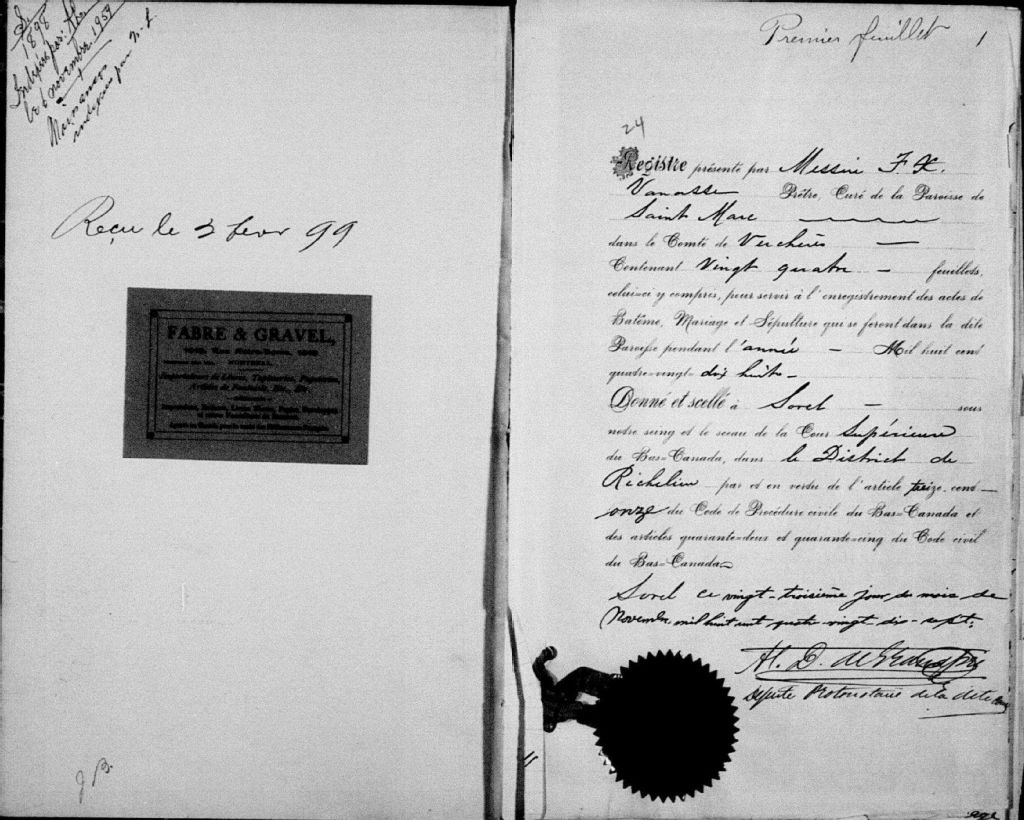 1898
le 6 novembre 1959
Reçu le 3 fevr 99
FABRE & GRAVEL,
J B.
Premier feuillet 1
24
Registre présenté par Messire F. X.
Vanasse Prêtre, Curé de la Paroisse de
Saint Marc
dans le Comté de Verchères —
Contenant Vingt quatre — feuillets,
celui-ci y compris, pour servir à l'enregistrement des actes de
Batême, Mariage et Sépulture qui se feront dans la dite
Paroisse pendant l'année — Mil huit cent
quatre-vingt- dix huit -
Donné et scellé à Sorel — sous
notre seing et le sceau de la Cour Supérieure
du Bas-Canada, dans le District de
Richelieu par et en vertu de l'article treize-cent —
onze du Code de Procédure civile du Bas-Canada et
des articles quarante-deux et quarante-cinq du Code civil
du Bas-Canada.
Sorel ce vingt-troisième jour du mois de
Novembre mil huit cent quatre-vingt dix-sept.
Député Protonotaire de la dite Cour